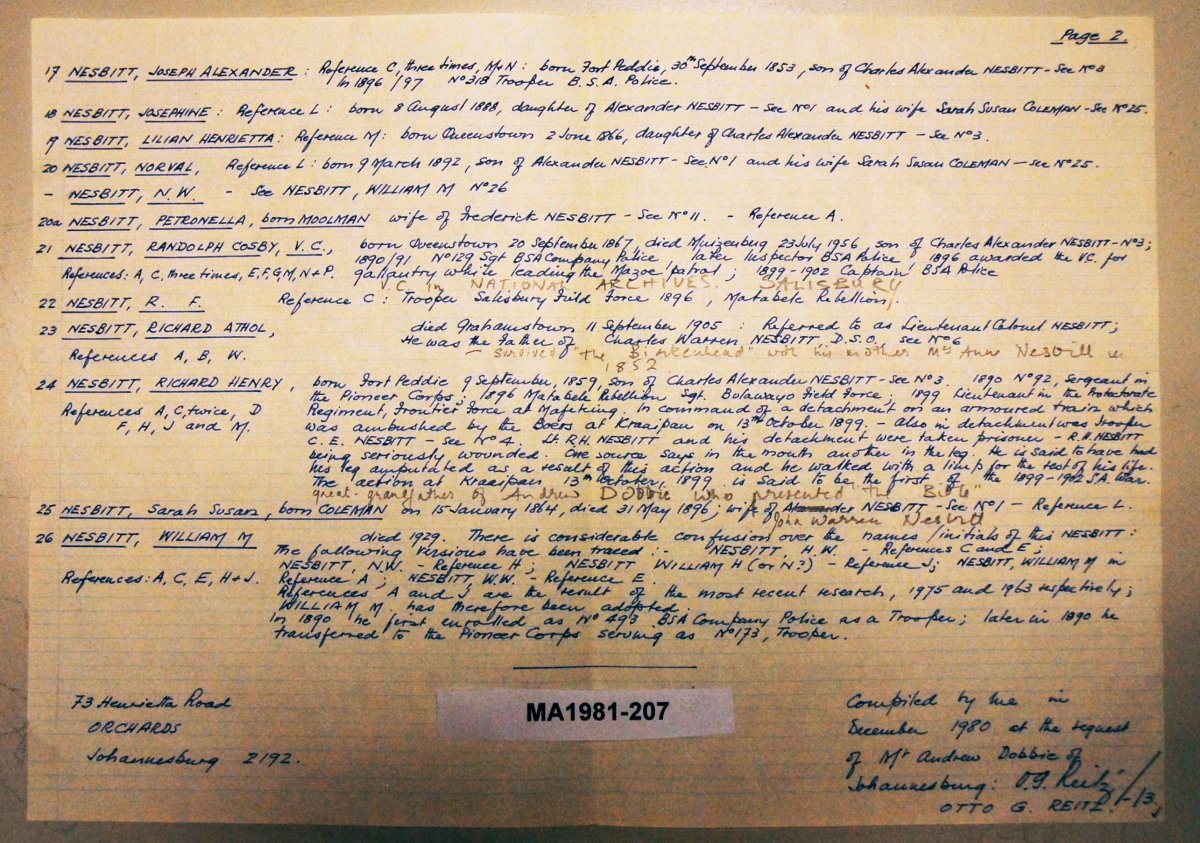 Page 2.
17 NESBITT, JOSEPH ALEXANDER: Reference C, three times, M+N: born Fort Peddie, 30th September 1853, son of Charles Alexander NESBITT - See No3
In 1896/97 No318 Trooper B.S.A. Police.
18 NESBITT, JOSEPHINE: Reference L: born 8 August 1888, daughter of Alexander NESBITT - See No1 and his wife Sarah Susan COLEMAN - See No25.
19 NESBITT, LILIAN HENRIETTA: Reference M: born Queenstown 2 June 1866, daughter of Charles Alexander NESBITT - See No3.
20 NESBITT, NORVAL, Reference L: born 9 March 1892, son of Alexander NESBITT - See No1 and his wife Sarah Susan COLEMAN - see No25.
- NESBITT, N.W. - See NESBITT, WILLIAM M No26
20a NESBITT, PETRONELLA, born MOOLMAN wife of Frederick NESBITT - See No11. - Reference A.
21 NESBITT, RANDOLPH COSBY, V.C., born Queenstown 20 September 1867, died Muizenburg 23 July 1956, son of Charles Alexander NESBITT - No3;
1890/91 No129 Sgt BSA Company Police, later Inspector BSA Police 1896 awarded the V.C. for
References: A, C, three times, E, F, G, M, N+P. gallantry while leading the Mazoe patrol; 1899-1902 Captain BSA Police
V.C. in NATIONAL ARCHIVES. SALISBURY
22 NESBITT, R. F. Reference C: Trooper Salisbury Field Force 1896, Matabele Rebellion,
23 NESBITT, RICHARD ATHOL, died Grahamstown 11 September 1905: Referred to as Lieutenant Colonel NESBITT;
He was the father of Charles Warren NESBITT, D.S.O. see No6
References A, B, W. - survived "The Birkenhead" with his mother Mrs Anne Nesbitt in
1852
24 NESBITT, RICHARD HENRY, born Fort Peddie 9 September, 1859, son of Charles Alexander NESBITT - See No3. 1890 No92, Sergeant in
the Pioneer Corps; 1896 Matabele Rebellion Sgt. Bulawayo Field Force; 1899 Lieutenant in the Protectorate
References A, C, twice, D Regiment, Frontier Force at Mafeking. In command of a detachment on an armoured train which
F, H, J and M. was ambushed by the Boers at Kraaipan on 13th October 1899. - Also in detachment was Trooper
C. E. NESBITT - see No4. Lt. R.H. NESBITT and his detachment were taken prisoner - R.H. NESBITT
being seriously wounded. One source says in the mouth another in the leg. He is said to have had
his leg amputated as a result of this action and he walked with a limp for the rest of his life.
The action at Kraaipan 13th October, 1899 is said to be the first of the 1899-1902 S.A. War.
great-grandfather of Andrew Dobbie who presented "the Bible"
25 NESBITT, Sarah Susan, born COLEMAN on 15 January 1864, died 31 May 1896; wife of Alexander NESBITT - See No1 - Reference L.
John Warren Nesbitt
26 NESBITT, WILLIAM M died 1929. There is considerable confusion over the names/initials of this NESBITT:
The following versions have been traced:- NESBITT, H.W. - References C and E;
NESBITT, N.W. - Reference H; NESBITT WILLIAM H (or N?) - Reference J; NESBITT, WILLIAM M in
References: A, C, E, H+J. Reference A; NESBITT, W.W. - Reference E.
References A and J are the result of the most recent research, 1975 and 1963 respectively;
WILLIAM M has therefore been adopted.
In 1890 he first enrolled as No 493 BSA Company Police as a Trooper; later in 1890 he
transferred to the Pioneer Corps serving as No173, Trooper.
73 Henrietta Road
ORCHARDS
Johannesburg 2192.
MA1981-207
Compiled by me in
December 1980 at the request
of Mr Andrew Dobbie of
Johannesburg: O.G. Reitz
OTTO G. REITZ